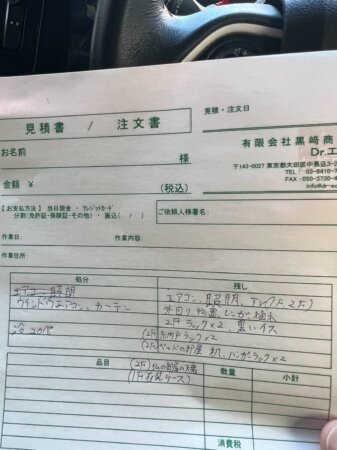 見積書 / 注文書
見積・注文日
お名前
様
有限会社黒崎商
Dr.エ
〒143-0027 東京都大田区中馬込3-2
TEL 03-6410-7
FAX 050-3730-4
info@dr-ac
金額 ¥
(税込)
【お支払方法】 当日現金・クレジットカード
分割(免許証・保険証・その他)・振込( / )
ご依頼人様署名:
作業日
作業内容:
作業住所:
処分
残し
エアコン、照明
ウインドウエアコン、カーテン
冷 208
エアコン、照明、TV(1F、2F)
外回り 物置
植木
2Fラックx2、黒いイス
(2F) ラックx2
(2F) の部屋 机、ハンガーラックx2
品目
(2F) 仏の部屋の
(1F
ケース)
数量
小計
消費税